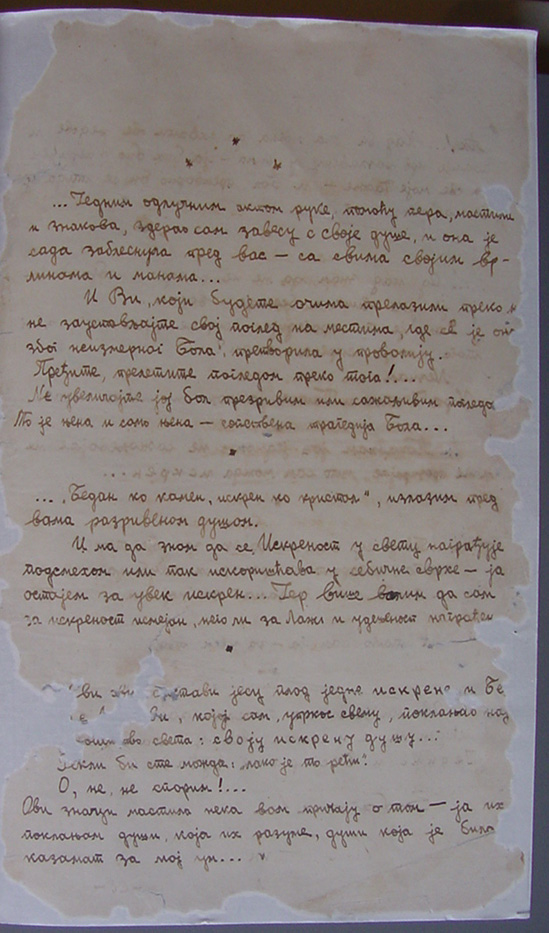 ... Једним одлучним актом руке, помоћу пера, мастила
и знакова, здерао сам завесу с своје душе, и она је
сада заблеснула пред вас — са свима својим вр-
линама и манама...
И Ви, који будете очима прелазили преко
не заустављајте свој поглед на местима, где се је
због неизмерног Бола, претворила у провалију..
Пређите, прелетите погледом преко тога!...
Не увеличајте јој бол презривим или сажаљивим
То је њена и само њена — сопствена трагедија Бола...
... „Бедан ко камен, искрен ко кристал“, излазим пред
вама разривеном душом.
И ма да знам да се Искреност у свету награђује
подсмехом или пак искоришћава у себичне сврхе — ја
остајем за увек искрен... Јер више волим да сам
за искреност исмејан, него ли за Лажи и
стави јесу плод једне искрене и
којој сам, упркос свему, поклањао
света: своју искрену душу...
би сте можда: лако је то рећи?
О, не, не спорим!...
Ови значци мастила нека вам причају о том — ја их
поклањам души, која их разуме, души која је била
казамат за мој ум...